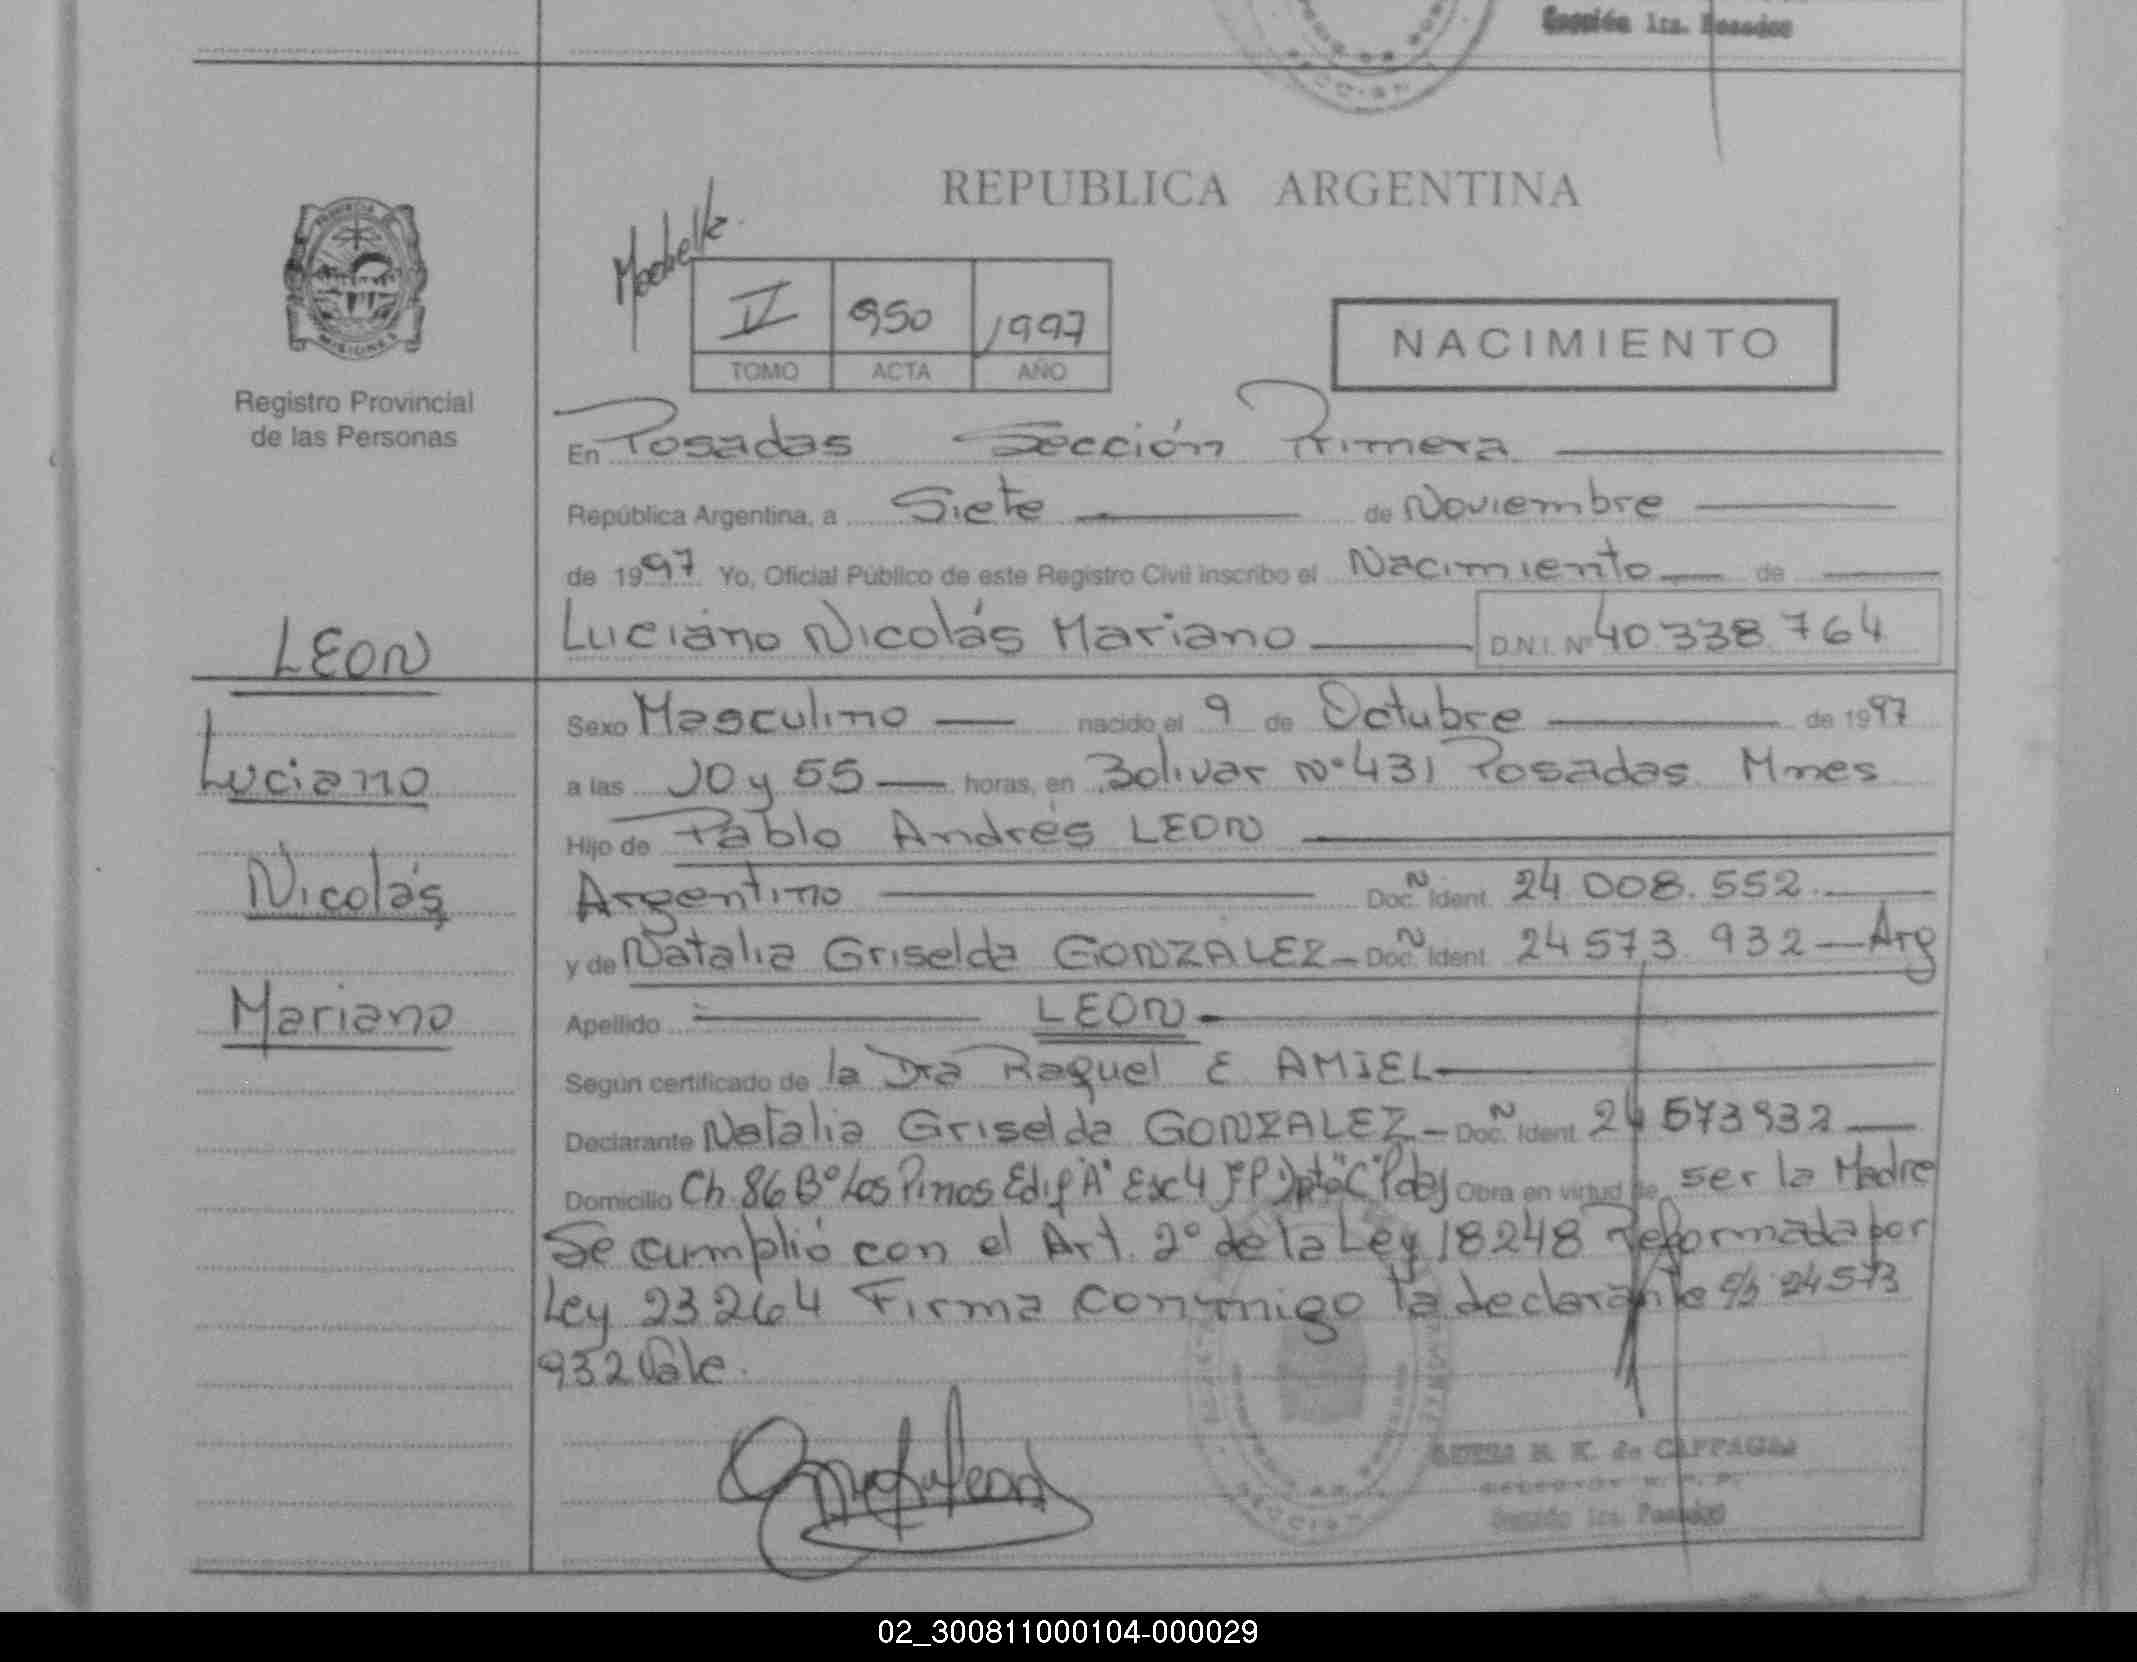 Sección 1ra. Posadas
REPUBLICA ARGENTINA
PROVINCIA
MISIONES
Registro Provincial
de las Personas
V 950 1997
TOMO ACTA AÑO
NACIMIENTO
En Posadas Sección Primera
República Argentina, a Siete de Noviembre
de 1997 Yo, Oficial Público de este Registro Civil inscribo el Nacimiento de
Luciano Nicolás Mariano D.N.I. Nº 40.338.764
LEON
Luciano
Nicolás
Mariano
Sexo Masculino nacido el 9 de Octubre de 1997
a las 10 y 55 horas, en Bolivar Nº 431 Posadas Mnes
Hijo de Pablo Andrés LEON
Argentino Doc. Ñ Ident. 24.008.552
y de Natalia Griselda GONZALEZ - Doc. Ñ Ident. 24 573.932 - Arg
Apellido LEON
Según certificado de la Dra Raquel E AMIEL
Declarante Natalia Griselda GONZALEZ - Doc. Ñ Ident. 24 573932
Domicilio Ch. 86 Bº Los Pinos Edif "A" Esc 4 Dpto "C" Pdas Obra en virtud de ser la Madre
Se cumplió con el Art. 2º de la Ley 18248 Reformada por
Ley 23264 Firma conmigo la declarante 24573
932 Vale.
de CAFFAGNI
Sección 1ra. Posadas
02_300811000104-000029